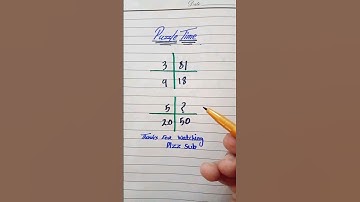 Date
Puzzle Time
3 81
9 18
5 ?
20 50
Thanks For Watching
Plzz Sub